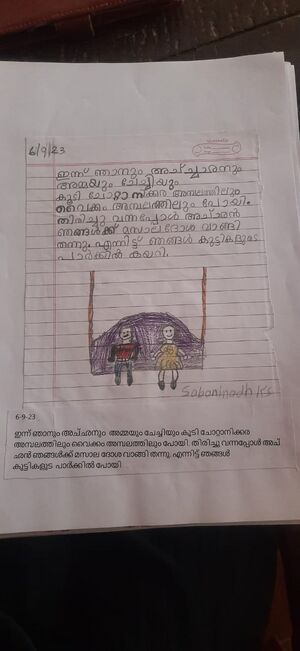 6/9/23
ഇന്ന് ഞാനും അച്ച്ചാരനും
അമ്മയും ചേച്ചിയും
കൂടി ചോറ്റാനിക്കര അമ്പലത്തിലും
വൈക്കം അമ്പലത്തിലും പോയി.
തിരിച്ചു വന്നപ്പോൾ അച്ഛൻ
ഞങ്ങൾക്ക് മസാലദോശ വാങ്ങി
തന്നു. എന്നിട്ട് ഞങ്ങൾ കുട്ടികളുടെ
പാർക്കിൽ കയറി.
Sabarinadh K S
6-9-23
ഇന്ന് ഞാനും അച്ഛനും അമ്മയും ചേച്ചിയും കൂടി ചോറ്റാനിക്കര
അമ്പലത്തിലും വൈക്കം അമ്പലത്തിലും പോയി. തിരിച്ചു വന്നപ്പോൾ അച്
ഛൻ ഞങ്ങൾക്ക് മസാല ദോശ വാങ്ങി തന്നു. എന്നിട്ട് ഞങ്ങൾ
കുട്ടികളുടെ പാർക്കിൽ പോയി